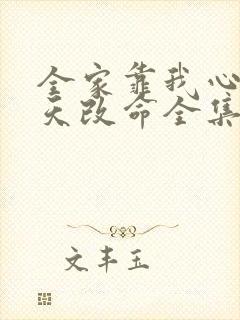 全家靠我心
天改命全集
文丰玉